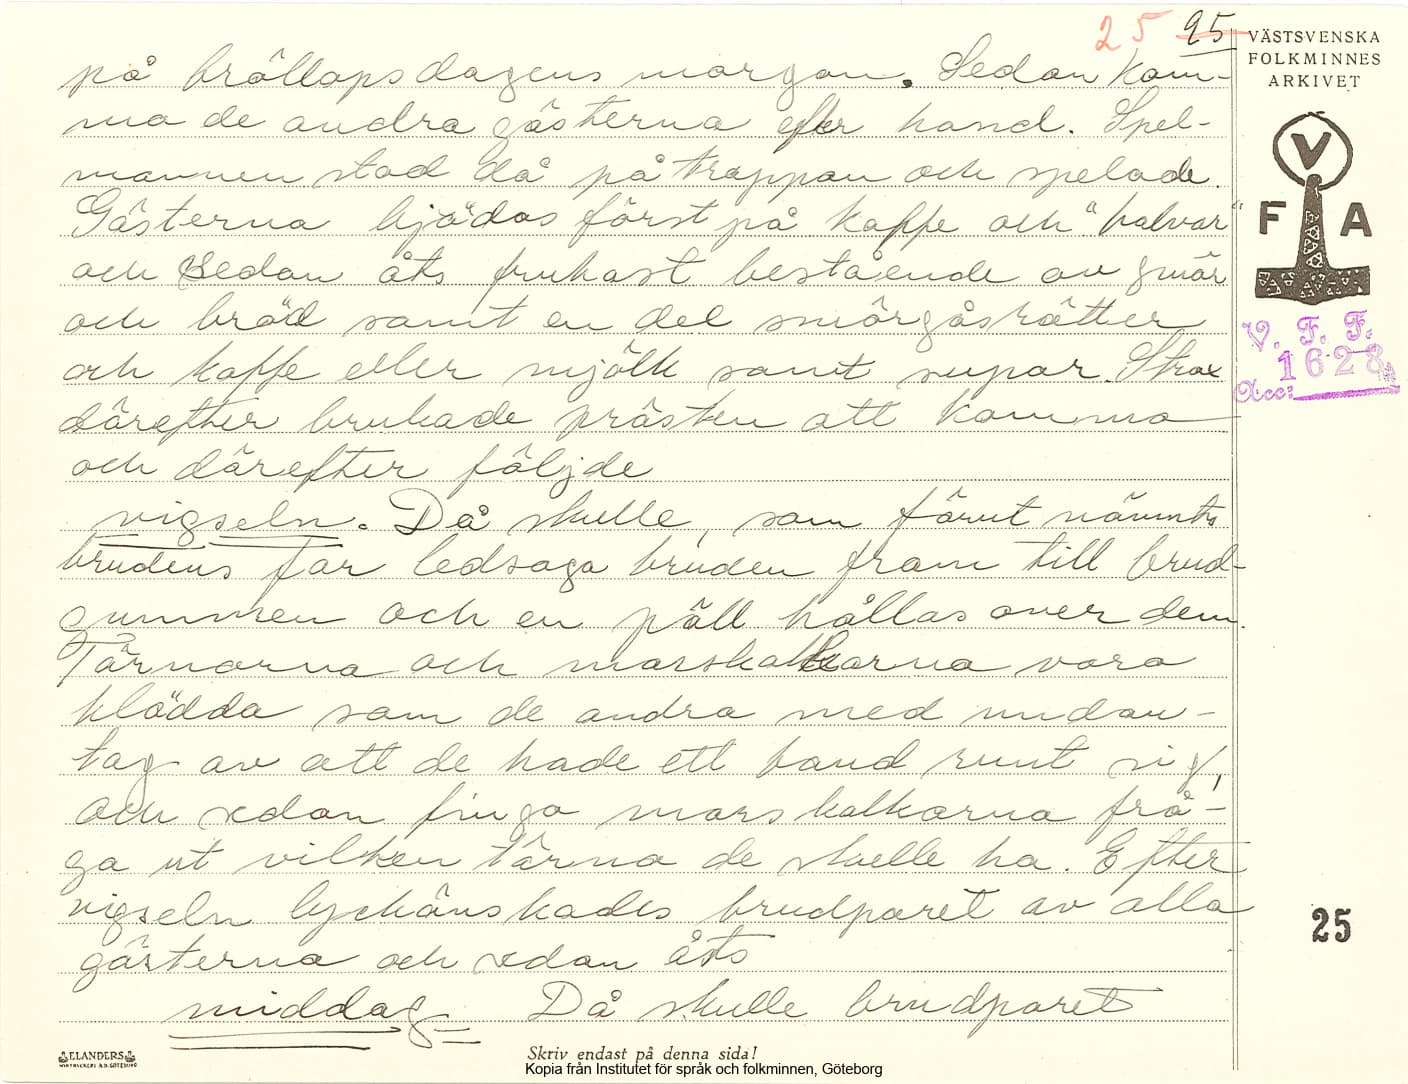 25 25
VÄSTSVENSKA
FOLKMINNES
ARKIVET
på bröllopsdagens morgon. Sedan kom-
ma de andra gästerna efter hand. Spel-
mannen stod då på trappan och spelade.
Gästerna bjödos först på kaffe och "halvar"
och sedan åts frukost bestående av smör
och bröd samt en del smörgåsrätter
och kaffe eller mjölk samt supar. Strax
därefter brukade prästen att komma
och därefter följde
vigseln. Då skulle, som förut nämnts
brudens far ledsaga bruden fram till brud-
gummen och en päll hållas över dem.
Tärnorna och marskalkarna voro
klädda som de andra med undan-
tag av att de hade ett band runt sig,
och sedan fingo marskalkarna frå-
ga ut vilken tärna de skulle ha. Efter
vigseln lyckönskades brudparet av alla
gästerna och sedan åts
middag Då skulle brudparet
V
F A
V. F. F.
1628
Acc:
25
ELANDERS
Skriv endast på denna sida!
Kopia från Institutet för språk och folkminnen, Göteborg